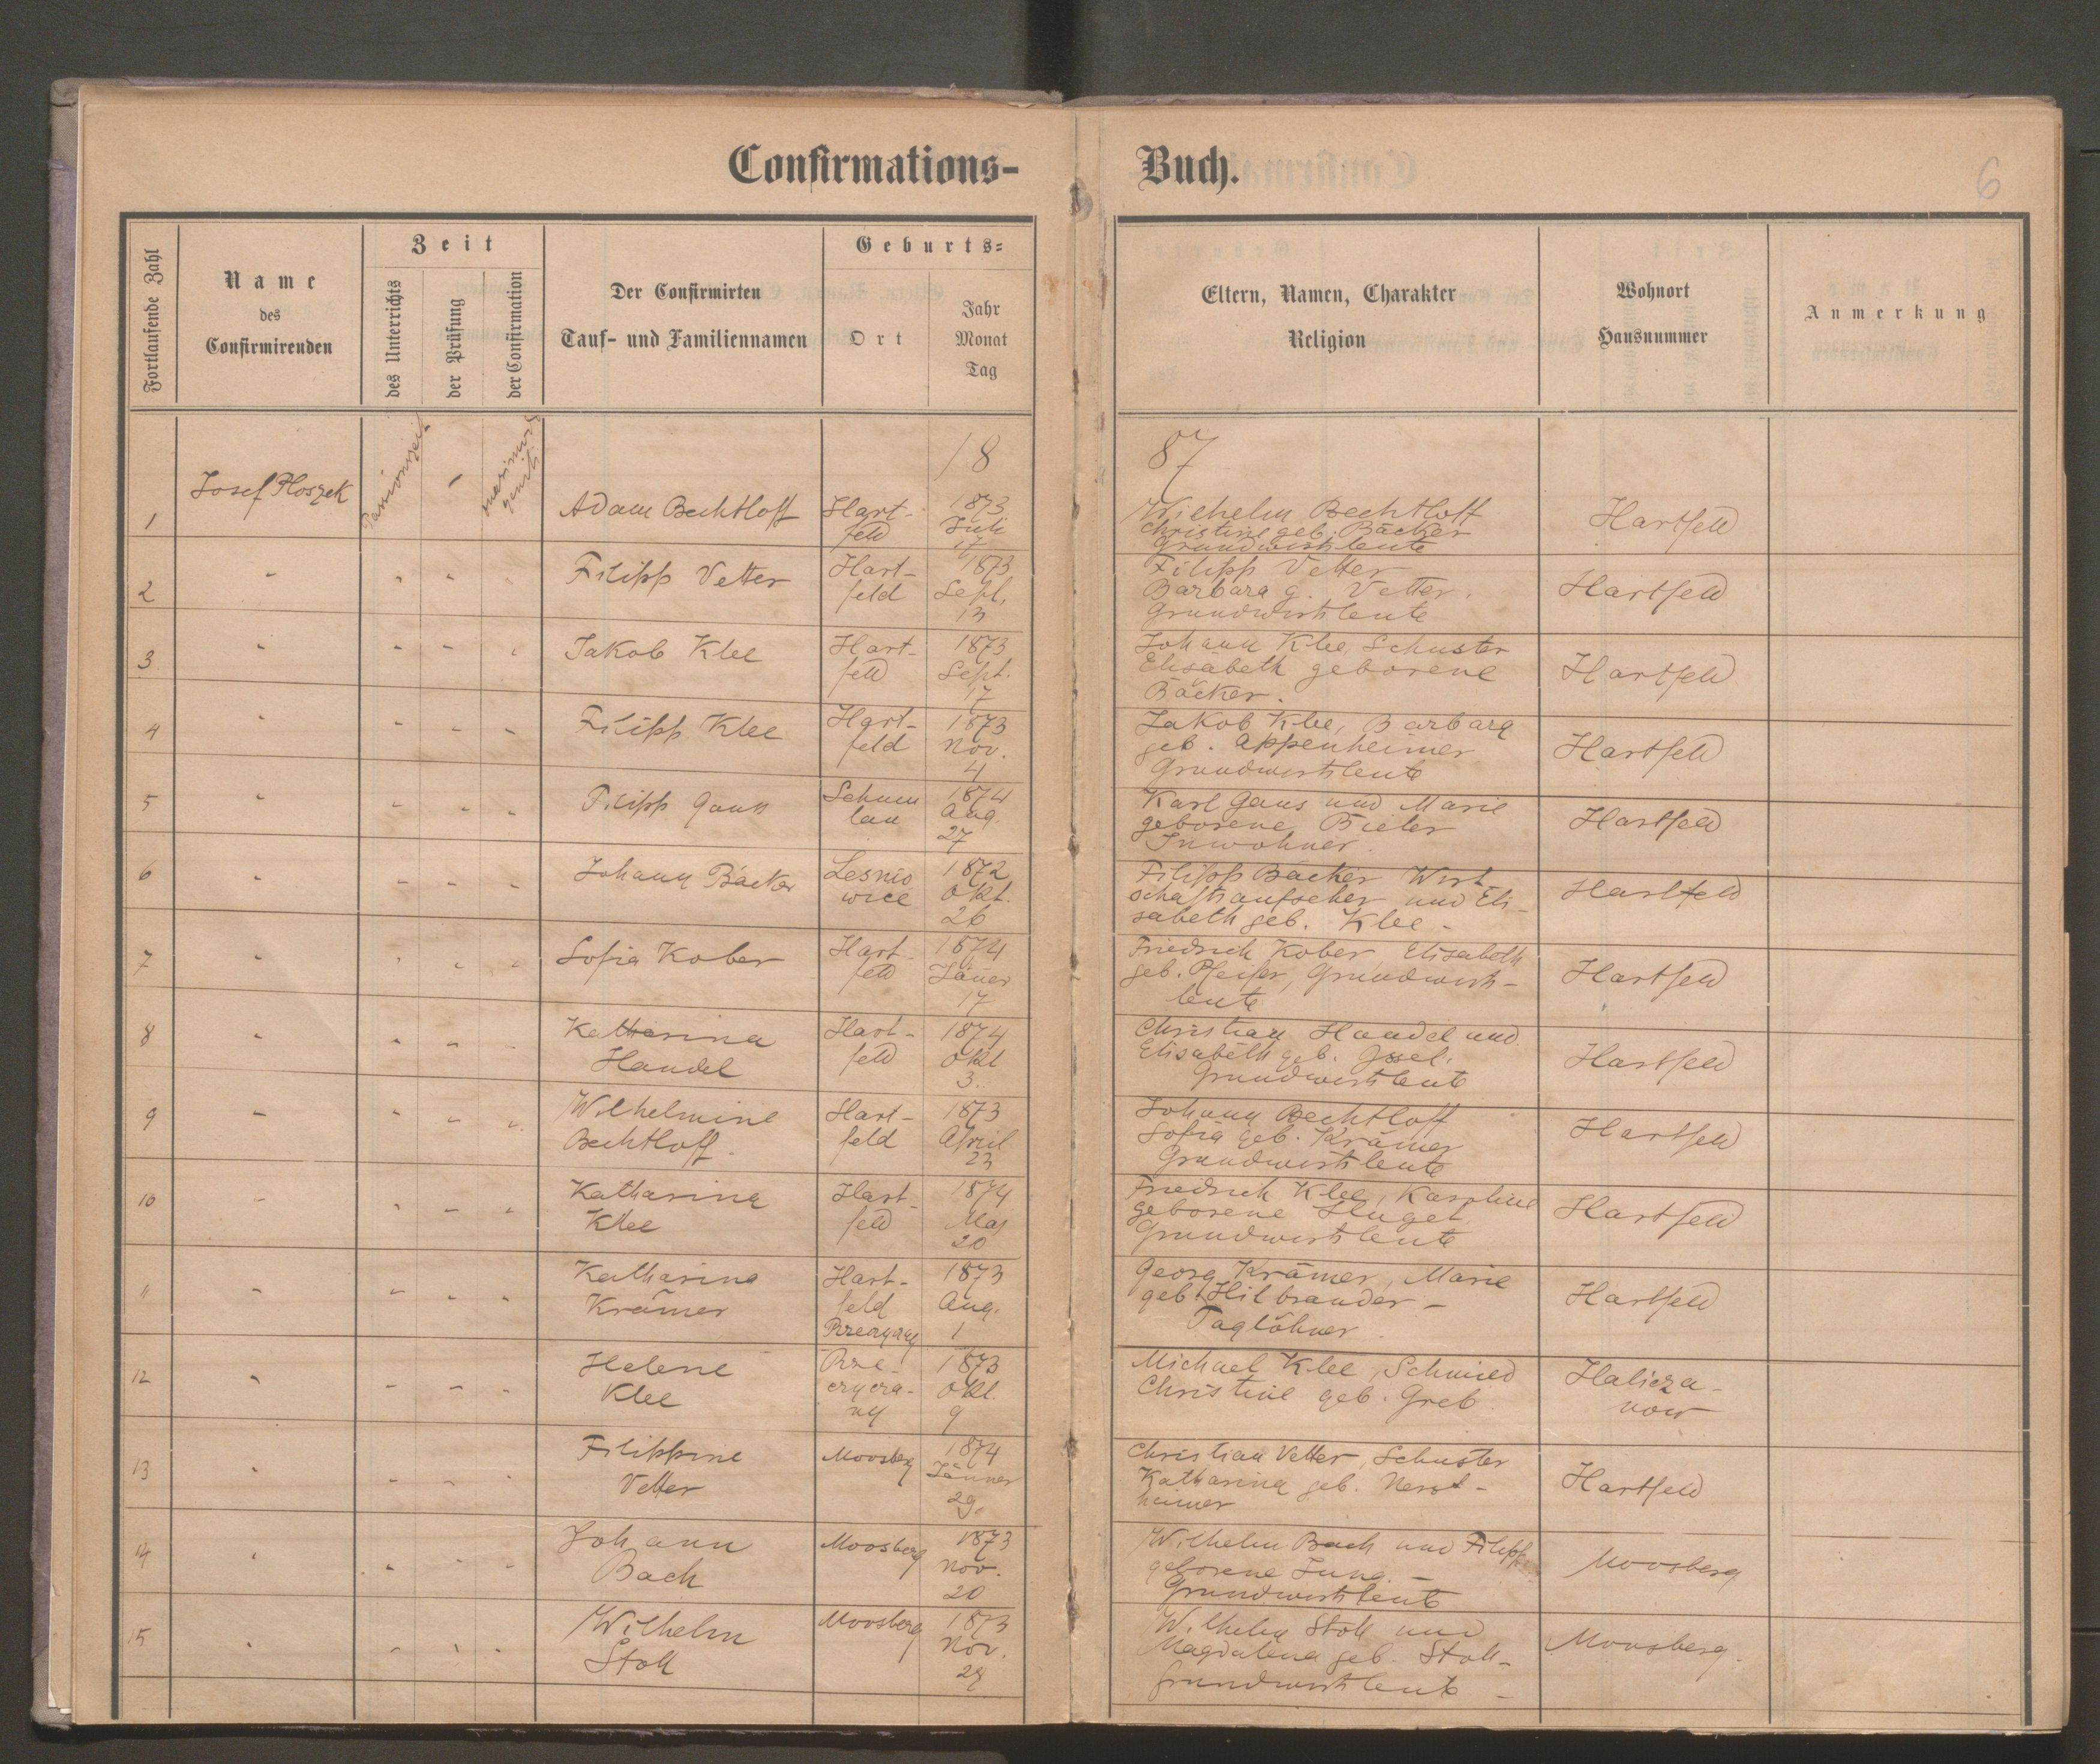 Confirmations- Buch.
6
Fortlaufende Zahl
Name
des
Confirmirenden
Zeit
des Unterrichts
der Prüfung
der Confirmation
Der Confirmirten
Tauf- und Familiennamen
Geburts=
Ort
Jahr
Monat
Tag
Eltern, Namen, Charakter
Religion
Wohnort
Hausnummer
Anmerkung
18 87
1
Josef Ploszek
Adam Bechtloff
Hart-
feld
1873
Juli
17
Wilhelm Bechtloff
Christine geb. Bäcker
Grundwirtsleute
Hartfeld
2
Filipp Vetter
Hart-
feld
1873
Sept.
13
Filipp Vetter
Barbara g. Vetter.
Grundwirtsleute
Hartfeld
3
Jakob Klee
Hart-
feld
1873
Sept.
17
Johann Klee, Schuster
Elisabeth geborene
Bäcker.
Hartfeld
4
Filipp Klee
Hart-
feld
1873
Nov.
4
Jakob Klee, Barbara
geb. Appenheimer
Grundwirtsleute
Hartfeld
5
Filipp
Schum
lau
1874
Aug.
27
Karl Gans und Marie
geborene Bieler
Inwohner.
Hartfeld
6
Johann Bäcker
Lesnio
wice
1872
Okt.
26
Filipp Bäcker Wirt
schaftsaufseher und Eli-
sabeth geb. Klee -
Hartfeld
7
Sofia Kober
Hart-
feld
1874
Jäner
17
Friedrich Kober, Elisabeth
geb. Pfeifer, Grundwirts-
leute
Hartfeld
8
Katharina
Handel
Hart-
feld
1874
Okt
3.
Christian Handel und
Elisabeth geb. Issel.
Grundwirtsleute
Hartfeld
9
Wilhelmine
Bechtloff.
Hart-
feld
1873
April
23
Johann Bechtloff
Sofia geb. Krämer
Grundwirtsleute
Hartfeld
10
Katharina
Klee
Hart-
feld
1874
Mai
20
Friedrich Klee, Karoline
geborene Huget
Grundwirtsleute
Hartfeld
11
Katharina
Krämer
Hart-
feld
1873
Aug.
1
Georg Krämer, Marie
geb. Hilbrander -
Taglöhner.
Hartfeld
12
Helene
Klee
1873
Okt.
9
Michael Klee, Schmied
Christine geb. Greb
Halicza-
now
13
Filippine
Vetter
Moosberg
1874
Jänner
29.
Christian Vetter, Schuster
Katharina geb.
heimer
Hartfeld
14
Johann
Bach
Moosberg
1873
Nov.
20
Wilhelm Bach und Filipp
geborene Jung. -
Grundwirtsleute
Moosberg
15
Wilhelm
Stoll
Moosberg
1873
Nov.
Wilhelm Stoll und
Magdalena geb. Stoll-
Grundwirtsleute -
Moosberg.